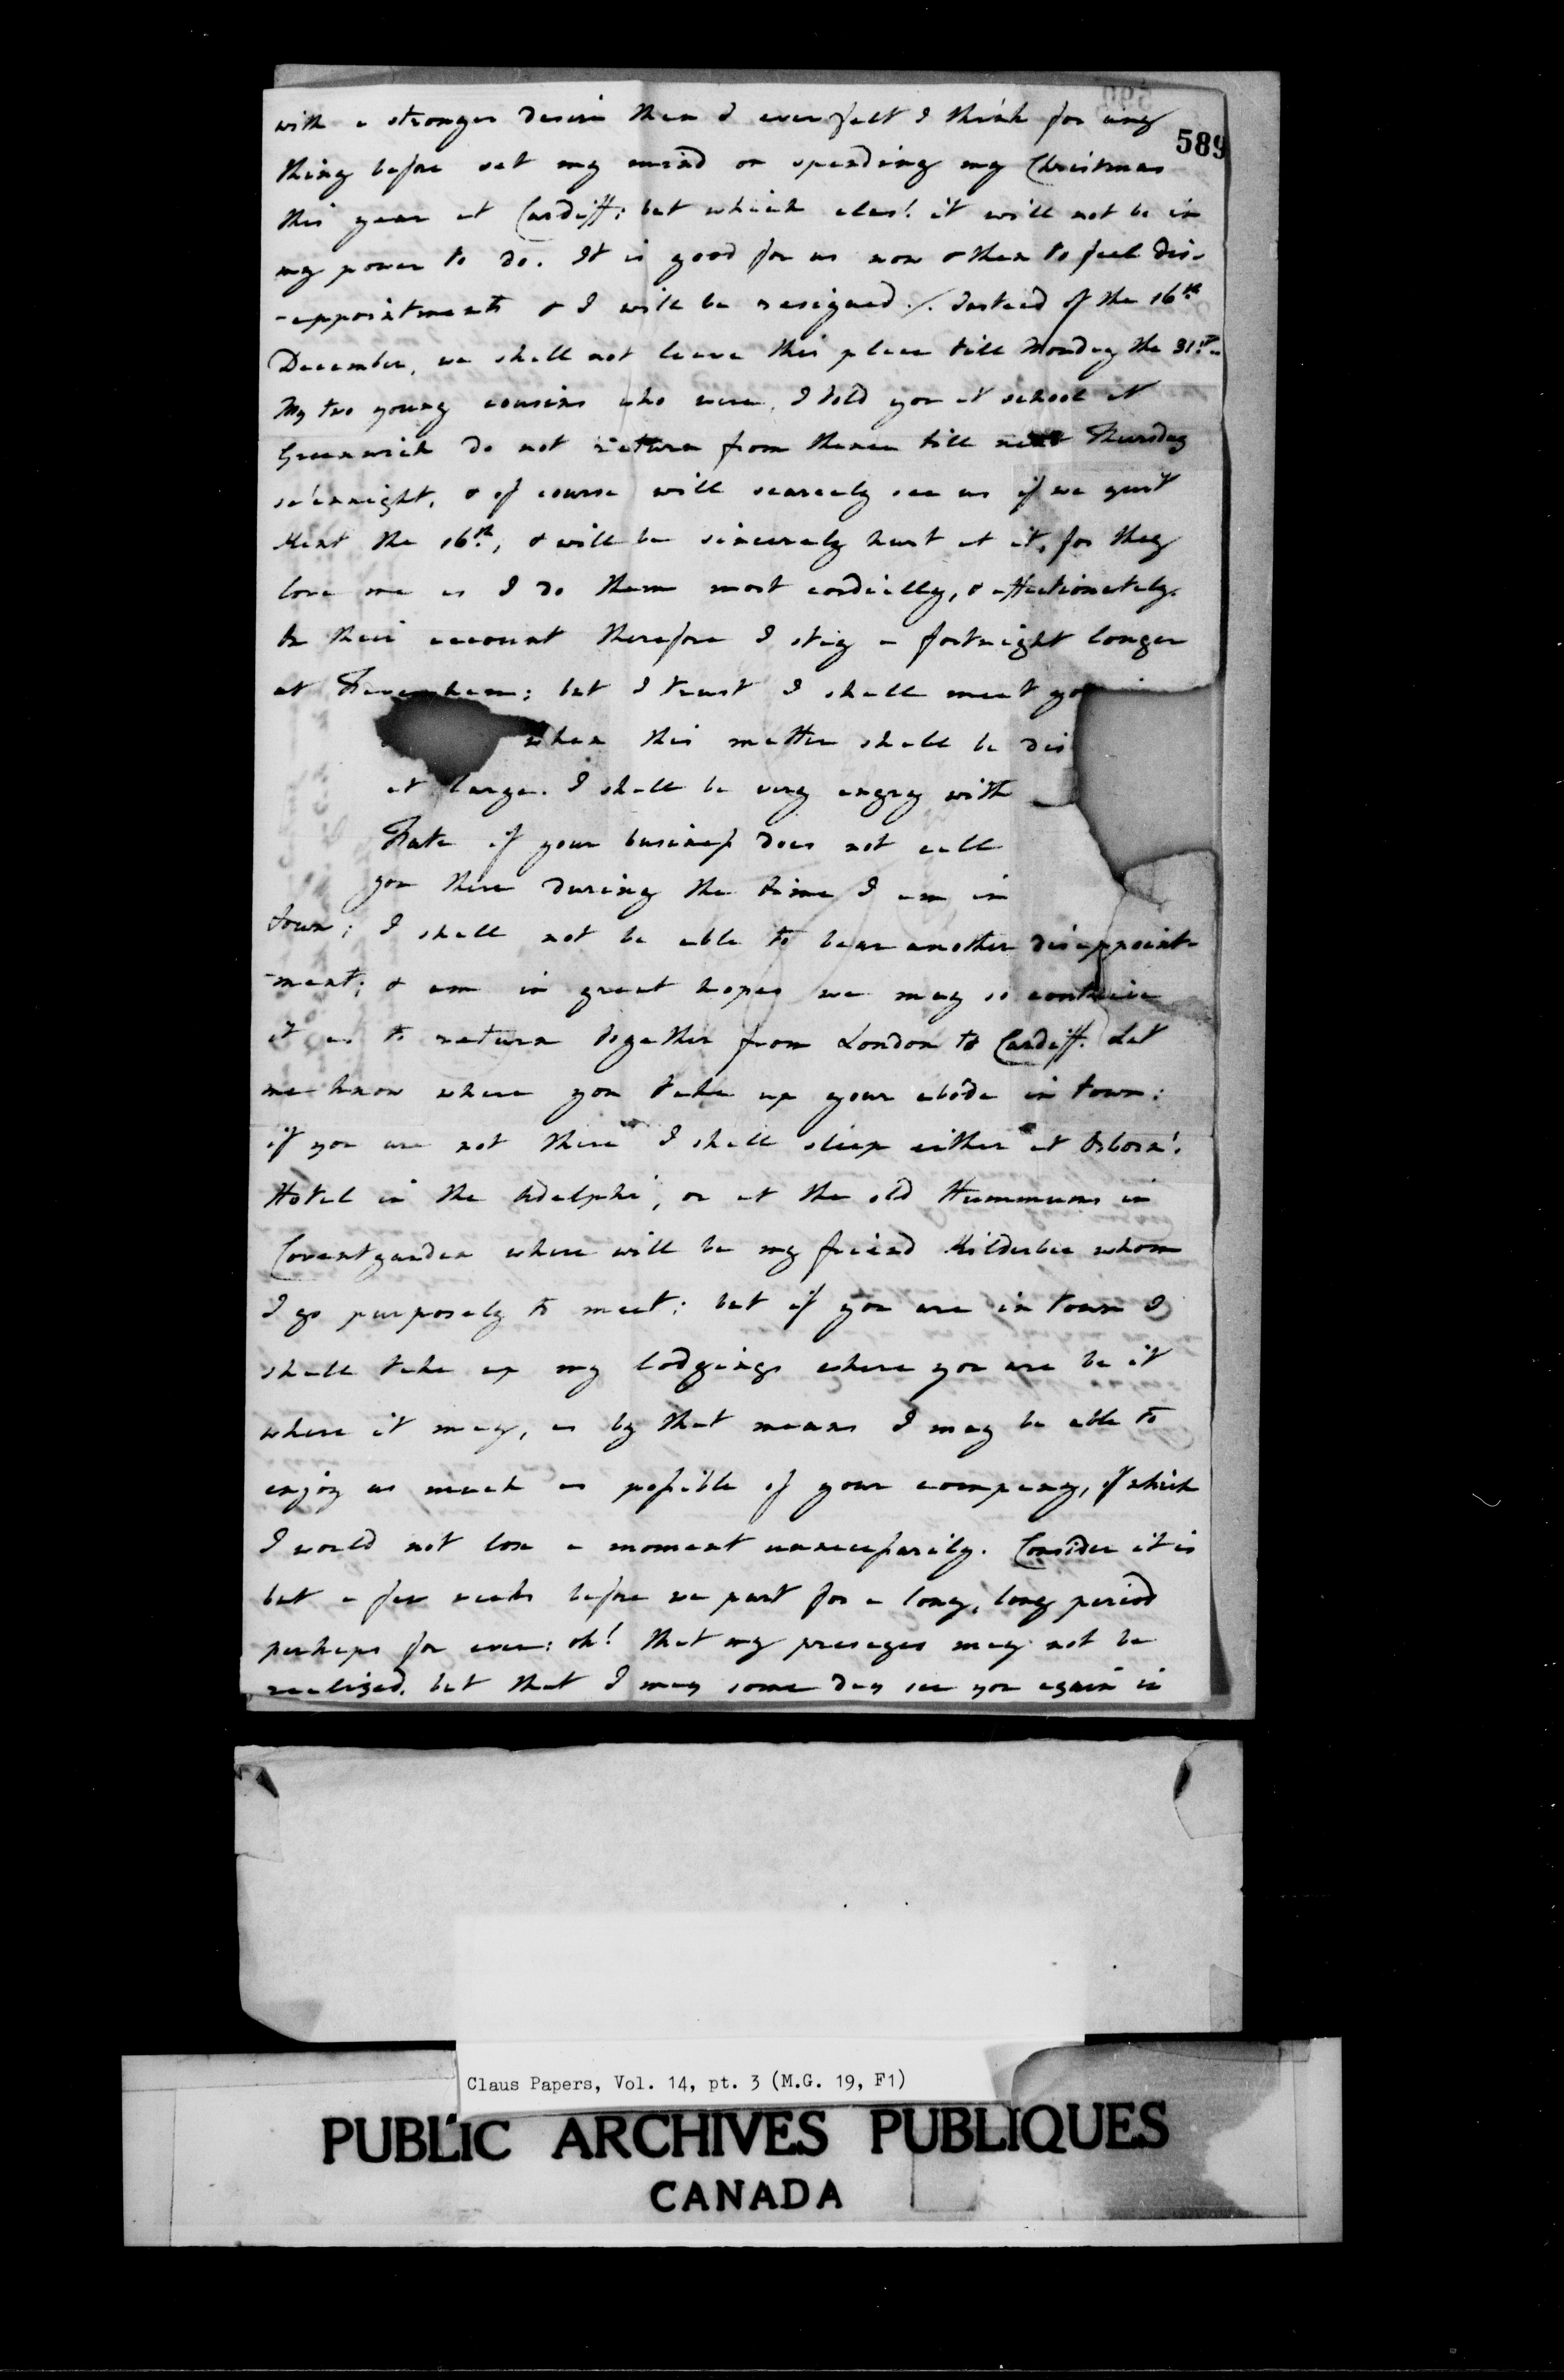 589
with a stronger desire than I ever felt I think for any
thing before set my mind on spending my Christmas
this year at Cardiff; but which alas! it will not be in
my power to do. It is good for us now & then to feel dis-
-appointments & I will be resigned ./. Instead of the 16th
December, we shall not leave this place till Monday the 31st.
My two young cousins who were, I told you at school at
Greenwich do not return from thence till next Thursday
se'nnight, & of course will scarcely see us if we quit
Kent the 16th, & will be sincerely hurt at it, for they
love me as I do them most cordially, & affectionately.
On their account therefore I stay a fortnight longer
at : but I trust I shall meet
when this matter shall be dis
at large. I shall be very angry with
Fate if your businefs does not call
you there during the time I am in
town; I shall not be able to bear another disappoint-
-ment; & am in great hopes we may so contrive
it as to return together from London to Cardiff. Let
me know where you take up your abode in town:
if you are not there I shall sleep either at Osborn's
Hotel in the Adelphi, or at the old Hummums in
Coventgarden where will be my friend Kilderbee whom
I go purposely to meet: but if you are in town I
shall take up my lodgings where you are be it
where it may, as by that means I may be able to
enjoy as much as pofsible of your company, of which
I would not lose a moment unnecefsarily. Consider it is
but a few weeks before we part for a long, long period
perhaps for ever: oh! that my presages may not be
realized, but that I may some day see you again in
Claus Papers, Vol. 14, pt. 3 (M.G. 19, F1)
PUBLIC ARCHIVES PUBLIQUES
CANADA